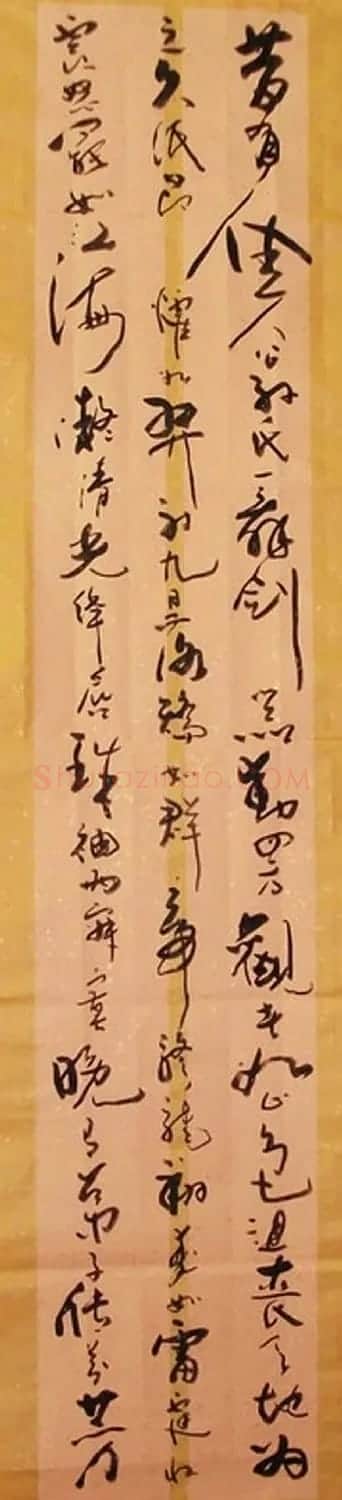 昔有佳人公孫氏一舞劍器動四方觀者如山色沮喪天地為
之久低昂㸌如羿射九日落矯如群帝驂龍翔來如雷霆收
震怒罷如江海凝清光絳唇珠袖兩寂寞晚有弟子傳芬芳